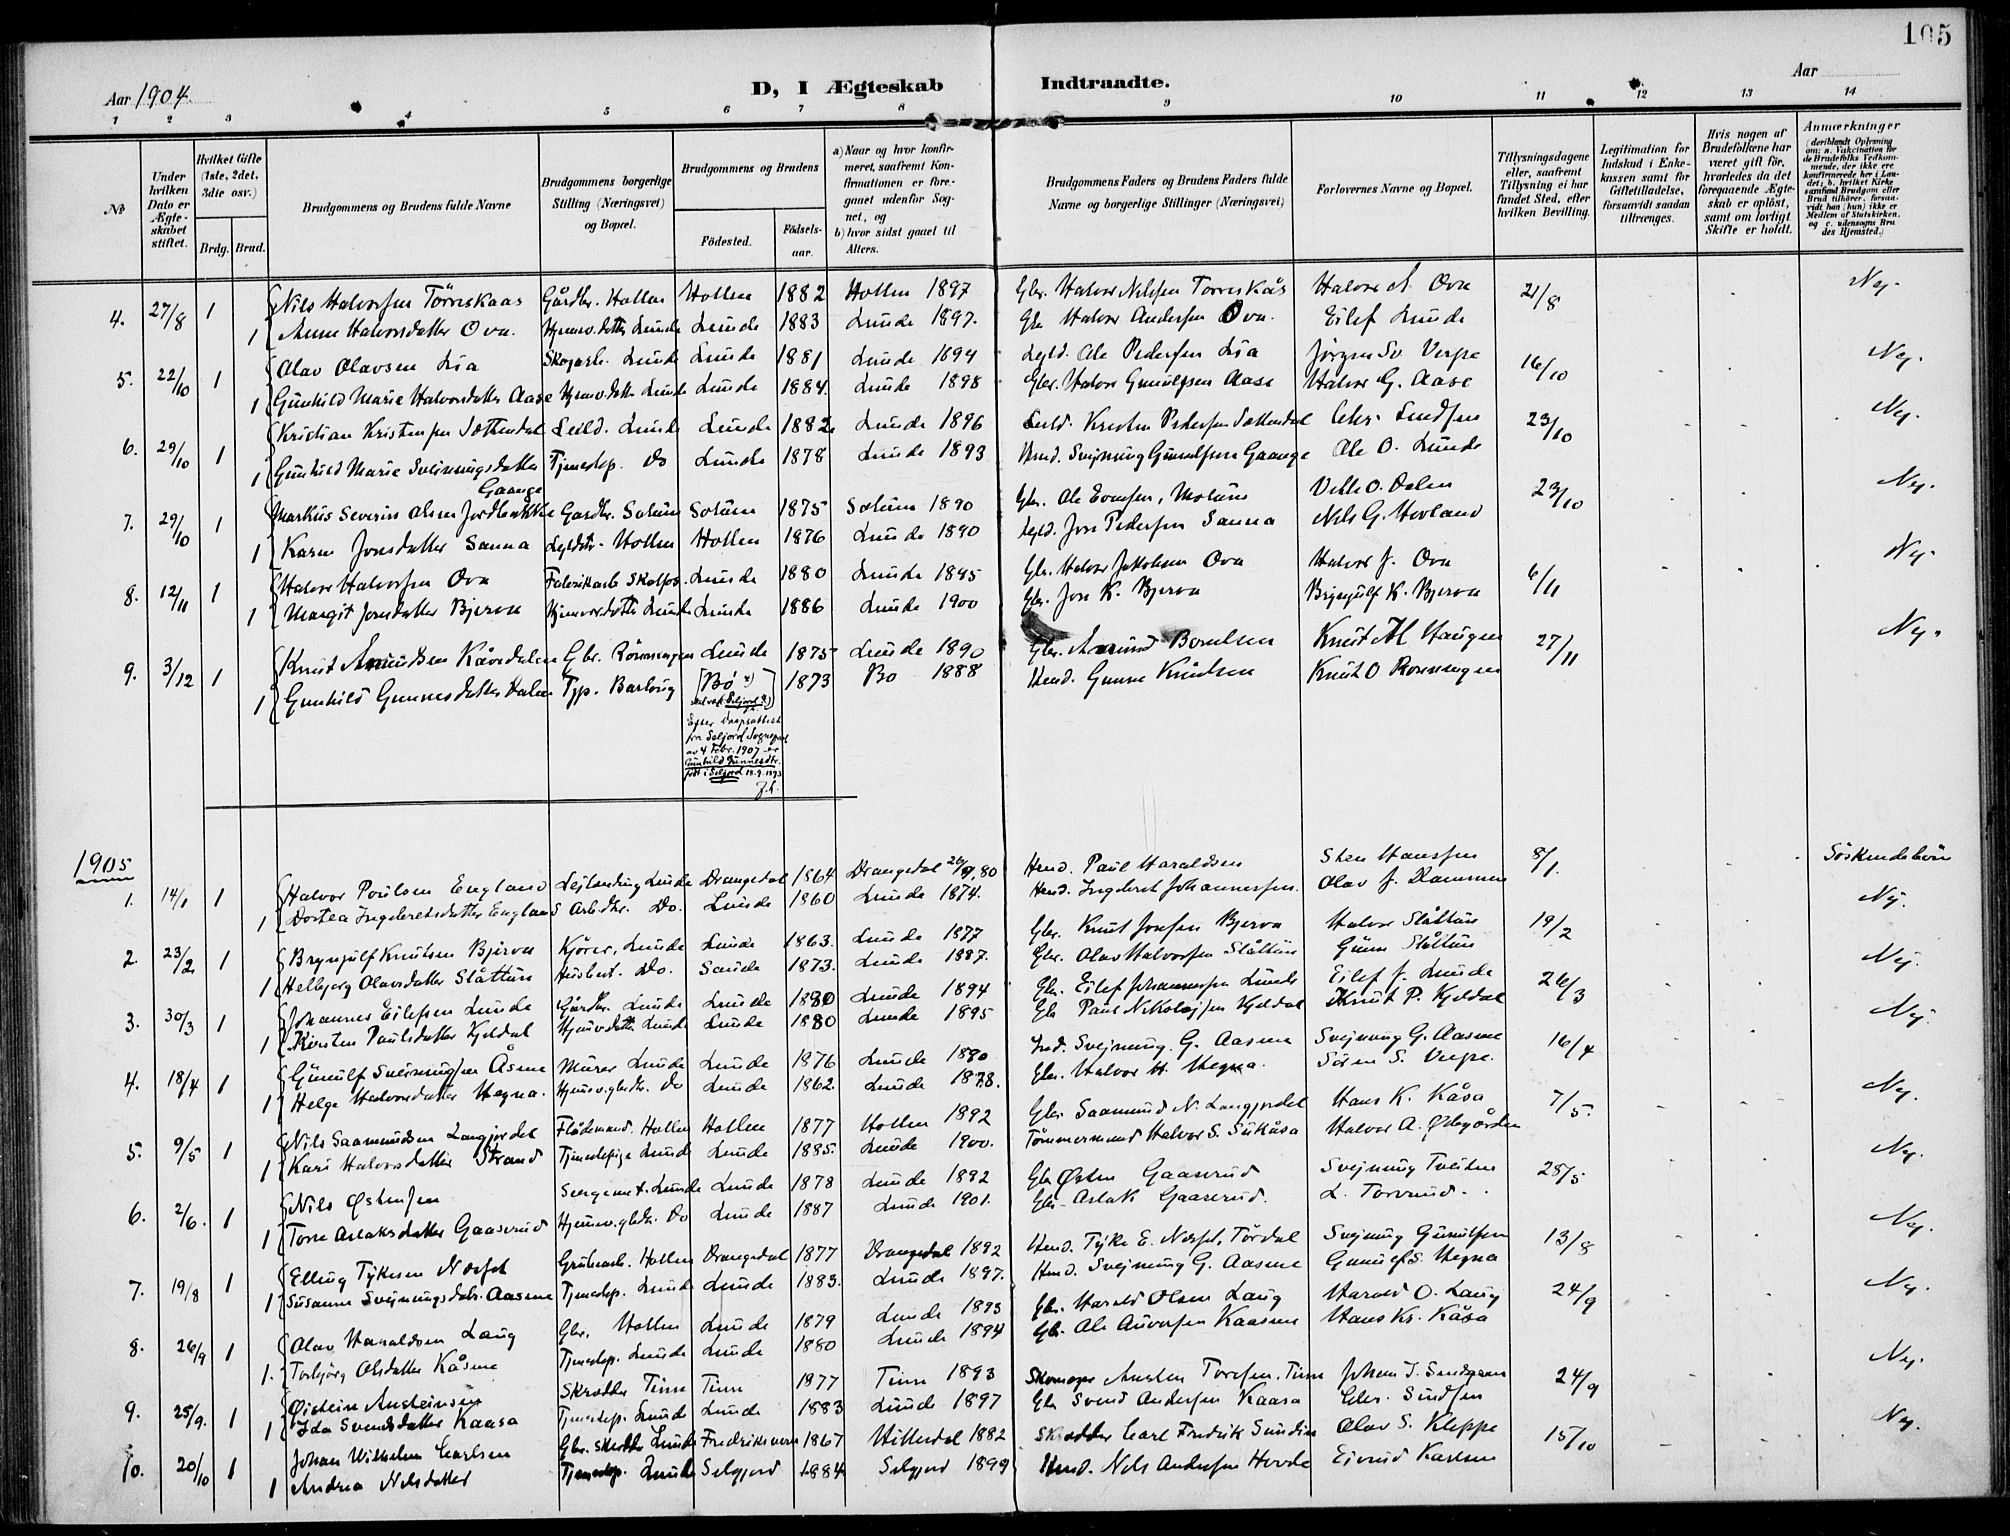 105
Aar 1904.
D, I Ægteskab Indtraadte.
Aar
1 2 3 4 5 6 7 8 9 10 11 12 13 14
№
Under hvilken Dato er Ægteskabet stiftet.
Hvilket Gifte (1ste, 2det, 3die osv.)
Brdg. Brud.
Brudgommens og Brudens fulde Navne
Brudgommens borgerlige Stilling (Næringsvei) og Bopæl.
Brudgommens og Brudens
Fødested. Fødsels-aar.
a) Naar og hvor konfirmeret, saafremt Konfirmationen er foregaaet udenfor Sognet, og
b) hvor sidst gaaet til Alters.
Brudgommens Faders og Brudens Faders fulde Navne og borgerlige Stillinger (Næringsvei)
Forlovernes Navne og Bopæl.
Tillysningsdagene eller, saafremt Tillysning ei har fundet Sted, efter hvilken Bevilling.
Legitimation for Indskud i Enkekassen samt for Giftetilladelse, forsaavidt saadan tiltrænges.
Hvis nogen af Brudefolkene har været gift før, hvorledes da det foregaaende Ægteskab er opløst, samt om lovligt Skifte er holdt.
Anmærkninger
(deriblandt Oplysning om: a. Vakcination for de Brudefolks Vedkommende, der ikke ere konfirmerede her i Landet; b. hvilket Kirkesamfund Brudgom eller Brud tilhører, forsaavidt han (hun) ikke er Medlem af Statskirken, og c. udensogns Brudes Hjemsted.)
4. 27/8 1 Nils Halvorsen Tørreskaas Gårdbr. Hollen Hollen 1882 Hollen 1897 Gbr. Halvor Nilssen Torreskås Halvor A Ova 21/8 Nej.
1 Anne Halvorsdatter Ova. Hjemv. datter Lunde Lunde 1883 Lunde 1897. Gbr Halvor Andersen Ova. Eilef Lunde
5. 22/10 1 Olav Olavsen Lia Skogarb. Lunde Lunde 1881 Lunde 1894 Leyld. Ole Pedersen Lia Jørgen Sv. Verpe 16/10 Nej.
1 Gunhild Marie Halvorsdatter Aase Hjemv. datter Lunde Lunde 1884. Lunde 1898 Gbr. Halvor Gunulfsen Aase Halvor G. Aase
6. 29/10 1 Kristian Kristensen Sattendal Leild. Lunde Lunde 1882. Lunde 1896 Leild. Kristen Pedersen Sattendal Chr. Lindsen 23/10 Nej.
1 Gunhild Marie Svejnungsdatter Gaange Tjenestep. Do Lunde 1878 Lunde 1893 Husmd. Svejnung Gunulfsen Gaange Ole O. Lunde
7. 29/10 1 Markus Severin Olsen Jordbakke Gardbr. Solum Solum 1875 Solum 1890 Gbr. Ole Evensen, Solum O. Dalen 23/10 Nej.
1 Karen Jonsdatter Sanna Leyldtr. Hollen Hollen 1876 Lunde 1890 Leyld. Jon Pedersen Sanna Nils G. Hovland
8. 12/11 1 Halvor Halvorsen Ova Fabrikarb Skotfos. Lunde 1880 Lunde 1895 Gbr. Halvor Jakobsen Ova Halvor J. Ova 6/11 Nej.
1 Margit Jonsdatter Bjerva Hjemv. datter Lunde Lunde 1886 Lunde 1900 Gbr. Jon K. Bjerva Brynjulf K. Bjerva
9. 3/12 1 Knut Amundsen Kåsedalen Gbr. Rönningen Lunde 1875 Lunde 1890 Gbr. Amund Knut A Haugen 27/11 Nej.
1 Gunhild Gunnesdatter Tjp. Bø x) 1873 Bø 1888 Husmd. Gunne Knudsen Knut O Rønningen
skal være Seljord
Efter Daapsattest
fra Seljord Sogneprest
av 4 Febr. 1907 er
Gunhild Gunnesdtr.
født i Seljord 18.9.1873
J.L.
1905
1. 14/1 1 Halvor Poulsen England Lejlending Lunde Drangedal 1864 Drangedal 26/9. 80 Husmd. Paul Haraldsen Sten Hanssen 8/1. Søskendebørn
1 Dortea Ingebretsdatter England S Arbdtr. Do. Lunde 1860 Lunde 1874. Husmd. Ingebret Johannessen. Olav J. Dammen Nej.
2. 23/2 1 Brynjulf Knutsen Bjerva Kjører, Lunde Lunde 1863. Lunde 1877 Gbr. Knut Jonsen Bjerva Halvor Slåttun 19/2
1 Helbjørg Olavsdatter Slåttun Husbest. Do. Saude 1873. Lunde 1887. Gbr. Olav Halvorsen Slåttun Gunn Slåttun Nej.
3. 30/3 1 Johannes Eilefsen Lunde Gårdbr. Lunde Lunde 1880 Lunde 1894 Gbr. Eilef Johannessen Lunde Eilef J. Lunde 26/3
1 Kirsten Paulsdatter Kjeldal Hjemv. datter Lunde Lunde 1880 Lunde 1895 Gbr Paul Nikolajsen Kjeldal Knut P. Kjeldal Nej.
4. 18/4 1 Gunulf Svejnungsen Åsme Murer Lunde Lunde 1876 Lunde 1890 Svejnung G. Aasme Svejnung G. Aasme 16/4
1 Helge Halvorsdatter Hegna. Hjemv. gbdtr. Do Lunde 1862. Lunde 1878. Gbr. Halvor H. Hegna. Søren S. Verpe. Nej.
5. 9/5 1 Nils Saamundsen Langjordet Flødemand. Hollen Hollen 1877 Hollen 1892 Gbr. Saamund N. Langjordet Hans K. Kåsa 7/5.
1 Kari Halvorsdatter Strand Tjenestepige Lunde Lunde 1885. Lunde 1900. Tømmermand Halvor S. Sukåsa Halvor A. Øbegården Nej.
6. 2/6. 1 Nils Østensen Sergeant. Lunde Lunde 1878 Lunde 1892 Gbr Østen Gaaserud Svejnung Tveiten 28/5
1 Tone Aslaksdatter Gaaserud Hjemv. gbdtr. Do Lunde 1887 Lunde 1901. Gbr. Aslak Gaaserud. L. Torvund. Nej.
7. 19/8 1 Elling Tykesen Nesset Grubearb. Hollen Drangedal 1877 Drangedal 1892 Husmd. Tyke E. Nesset, Tørdal Svejnung Gunulfsen 13/8
1 Susanne Svejnungsdatr. Aasme Tjenestep. Lunde Lunde 1883. Lunde 1897. Husmd. Svejnung G. Aasme Gunulf S. Hegna Nej.
8. 26/9 1 Olav Haraldsen Laug Gbr. Hollen Lunde 1879 Lunde 1893 Gbr. Harald Olsen Laug Harald O. Laug 24/9
1. Torbjørg Olsdatter Kåsene Tjenestep. Lunde Lunde 1880 Lunde 1894 Gbr. Ole Kaasene Hans Kr. Kåsa Nej.
9. 25/9. 1 Øistein Austeinsen Skrædder Tinn Tinn 1877 Tinn 1893 Skomager Austen Torresen, Tinn Johan 24/9
1 Ida Svendsdatter Kaasa Tjenestep. Lunde Lunde 1883 Lunde 1897 Gbr Svend Andersen Kaasa Chr. Sindsen
10. 20/10 1 Johan Wilhelm Carlsen Gbr. skrædder Lunde Fredriksværn 1867 Hitterdal 1882 Skrædder Carl Fredrik Sundin Olav S. Kleppe 15/10 Nej.
1 Andrea Nilsdatter Tjenestep. Lunde Selgjord 1884 Selgjord 1899 Husmd. Nils Andersen Hovde Eivind Karlsen